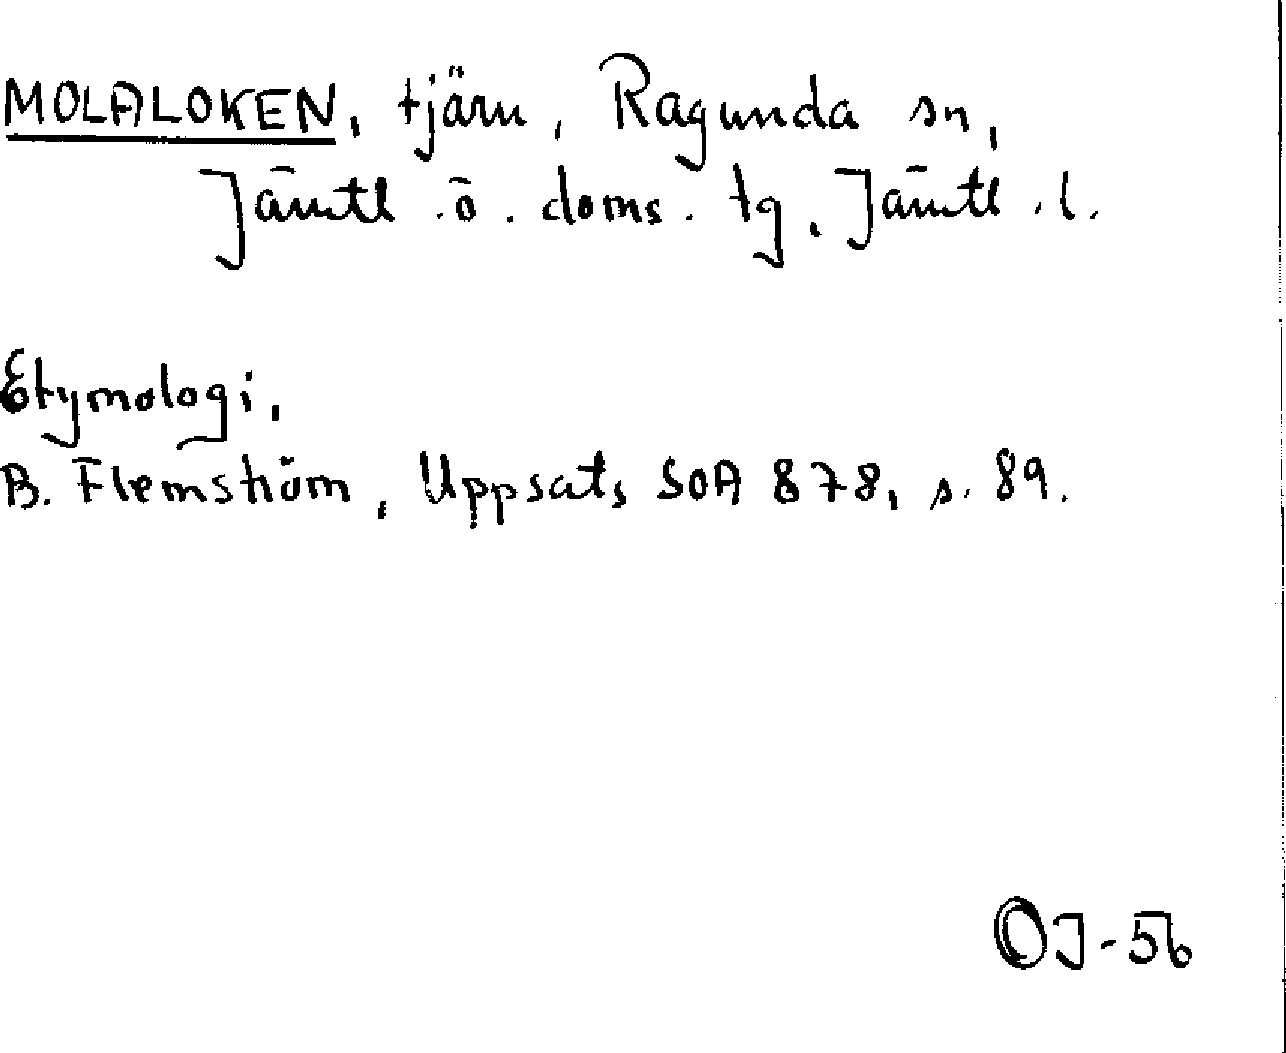 MOLALOKEN, tjärn, Ragunda sn,
Jämtl. ö. doms. tg. Jämtl. l.
Etymologi.
B. Flemström, Uppsats SOA 878, s. 89.
OJ-56